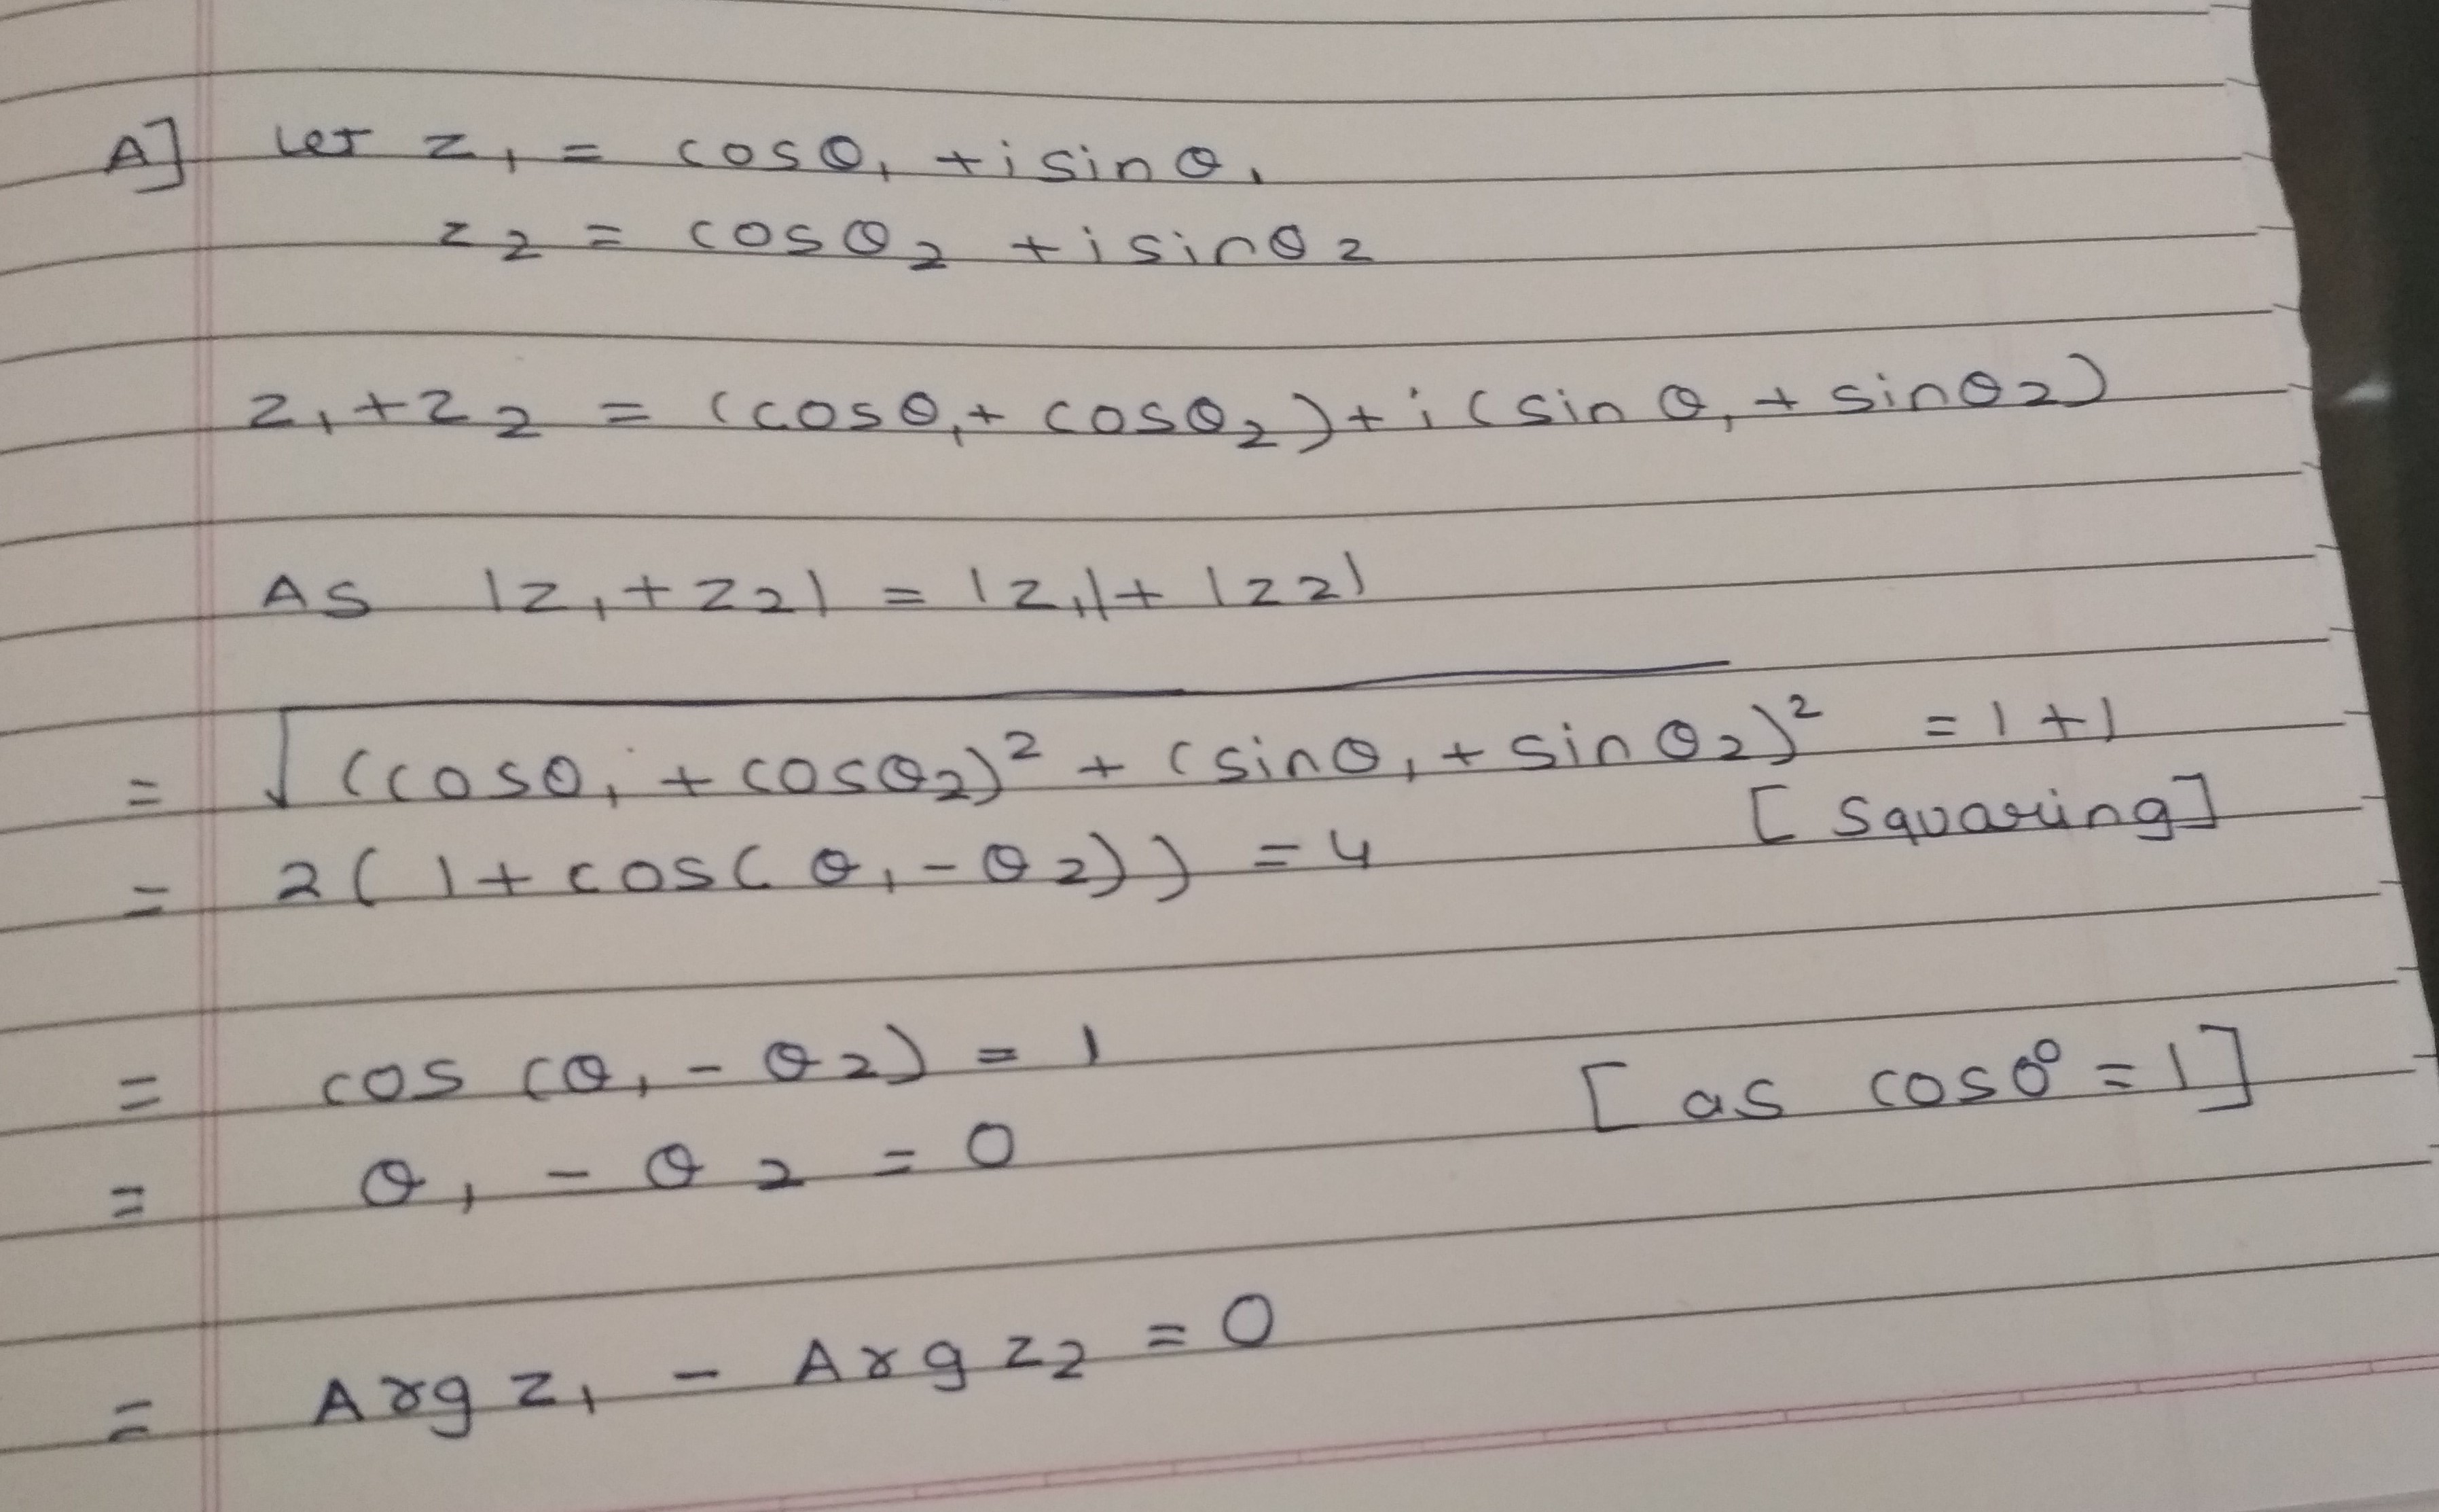 A] Let z₁ = cosθ₁ + i sinθ₁
z₂ = cosθ₂ + i sinθ₂
z₁ + z₂ = (cosθ₁ + cosθ₂) + i (sinθ₁ + sinθ₂)
As |z₁ + z₂| = |z₁| + |z₂|
= √((cosθ₁ + cosθ₂)² + (sinθ₁ + sinθ₂)²) = 1 + 1
[Squaring]
= 2(1 + cos(θ₁ - θ₂)) = 4
= cos(θ₁ - θ₂) = 1
[as cos0° = 1]
= θ₁ - θ₂ = 0
= Arg z₁ - Arg z₂ = 0